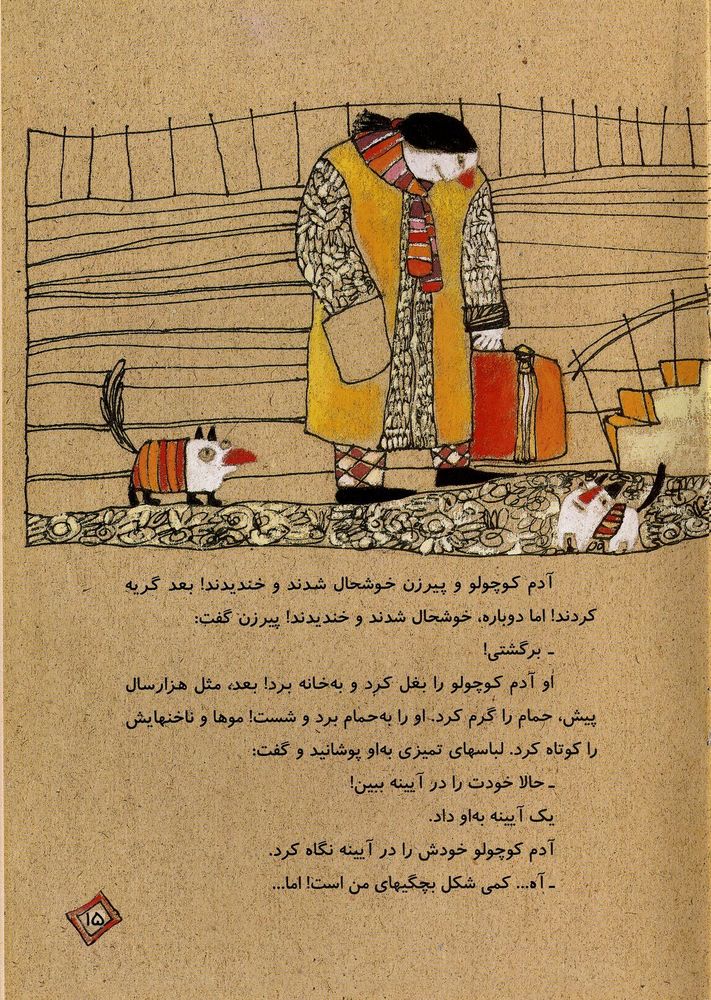 آدم کوچولو و پیرزن خوشحال شدند و خندیدند! بعد گریه
کردند! اما دوباره، خوشحال شدند و خندیدند! پیرزن گفت:
ـ برگشتی!
او آدم کوچولو را بغل کرد و به‌خانه برد! بعد، مثل هزارسال
پیش، حمام را گرم کرد. او را به‌حمام برد و شست! موها و ناخنهایش
را کوتاه کرد. لباسهای تمیزی به‌او پوشانید و گفت:
ـ حالا خودت را در آیینه ببین!
یک آیینه به‌او داد.
آدم کوچولو خودش را در آیینه نگاه کرد.
ـ آه... کمی شکل بچگیهای من است! اما...
۱۵